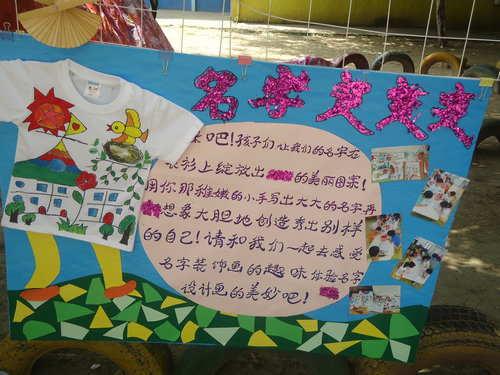 名字变变变
来吧!孩子们让我们的名字在
衣衫上绽放出的美丽图案!
用你那稚嫩的小手写出大大的名字,再
想象大胆地创造秀出别样
的自己!请和我们一起去感受
名字装饰画的趣味体验名字
设计画的美妙吧!